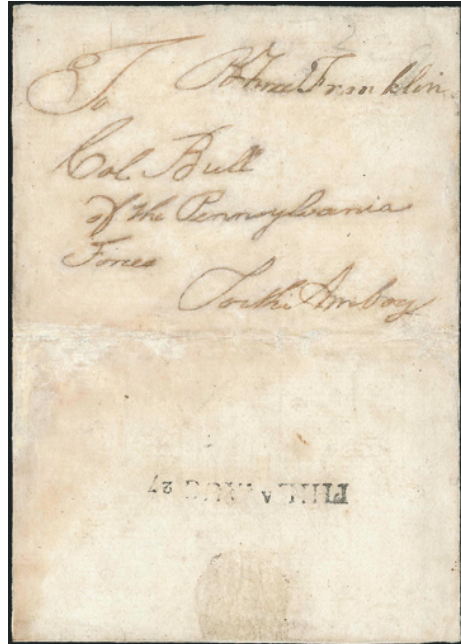 B Free Franklin
To
Col. Bull
of the Pennsylvania
Forces
Perth Amboy
PHILA AUG 27